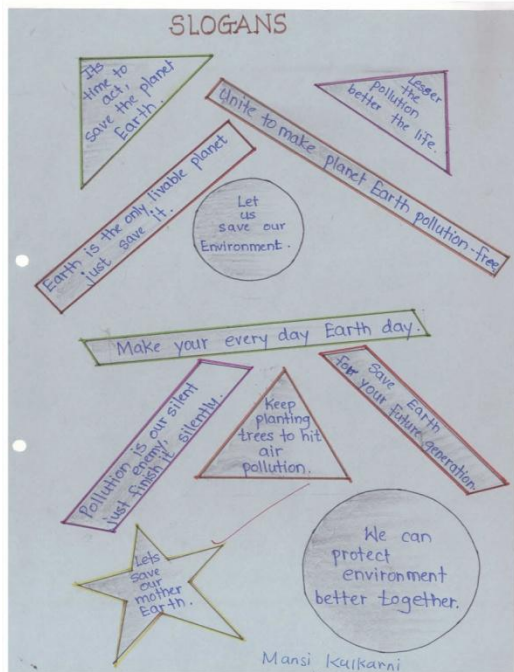 SLOGANS
Its
time to
act,
save the planet
Earth.
Unite to make planet Earth pollution-free.
Lesser
the
pollution
better
the life.
Earth is the only livable planet
just save it.
Let
us
save our
Environment.
Make your every day Earth day.
Pollution is our silent
enemy,
just finish it silently.
Keep
planting
trees to hit
air
pollution.
Save Earth
for your future generation.
Lets
save
our
mother
Earth.
We can
protect
environment
better together.
Mansi Kulkarni